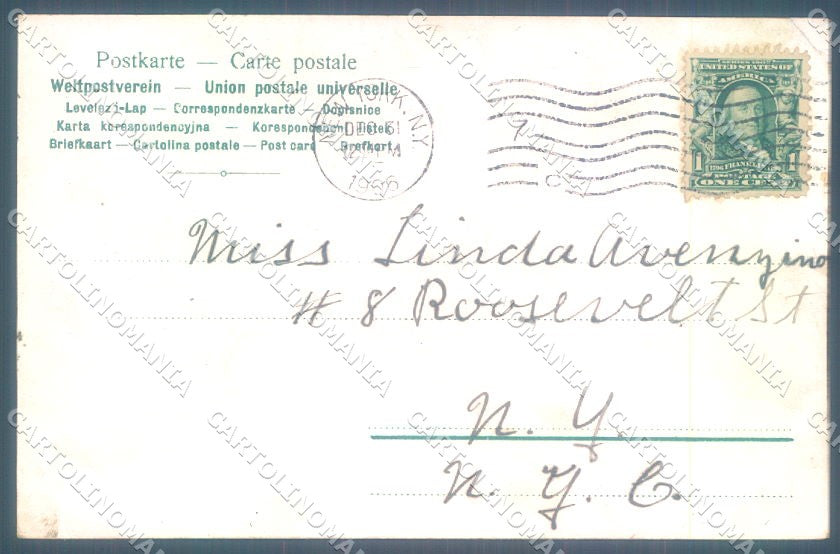 Postkarte — Carte postale
Weltpostverein — Union postale universelle
Levelezö-Lap — Correspondenzkarte — Dopisnice
Karta korespondencyjna — Korespondenční lístek
Briefkaart — Cartolina postale — Post card — Brefkort
NEW YORK, N.Y.
DEC 6
SERIES 1902
UNITED STATES OF
AMERICA
FRANKLIN
1 POSTAGE 1
ONE CENT
Miss Linda Avenzino
# 8 Roosevelt St
N. Y.
N. Y. C.
CARTOLINOMANIA